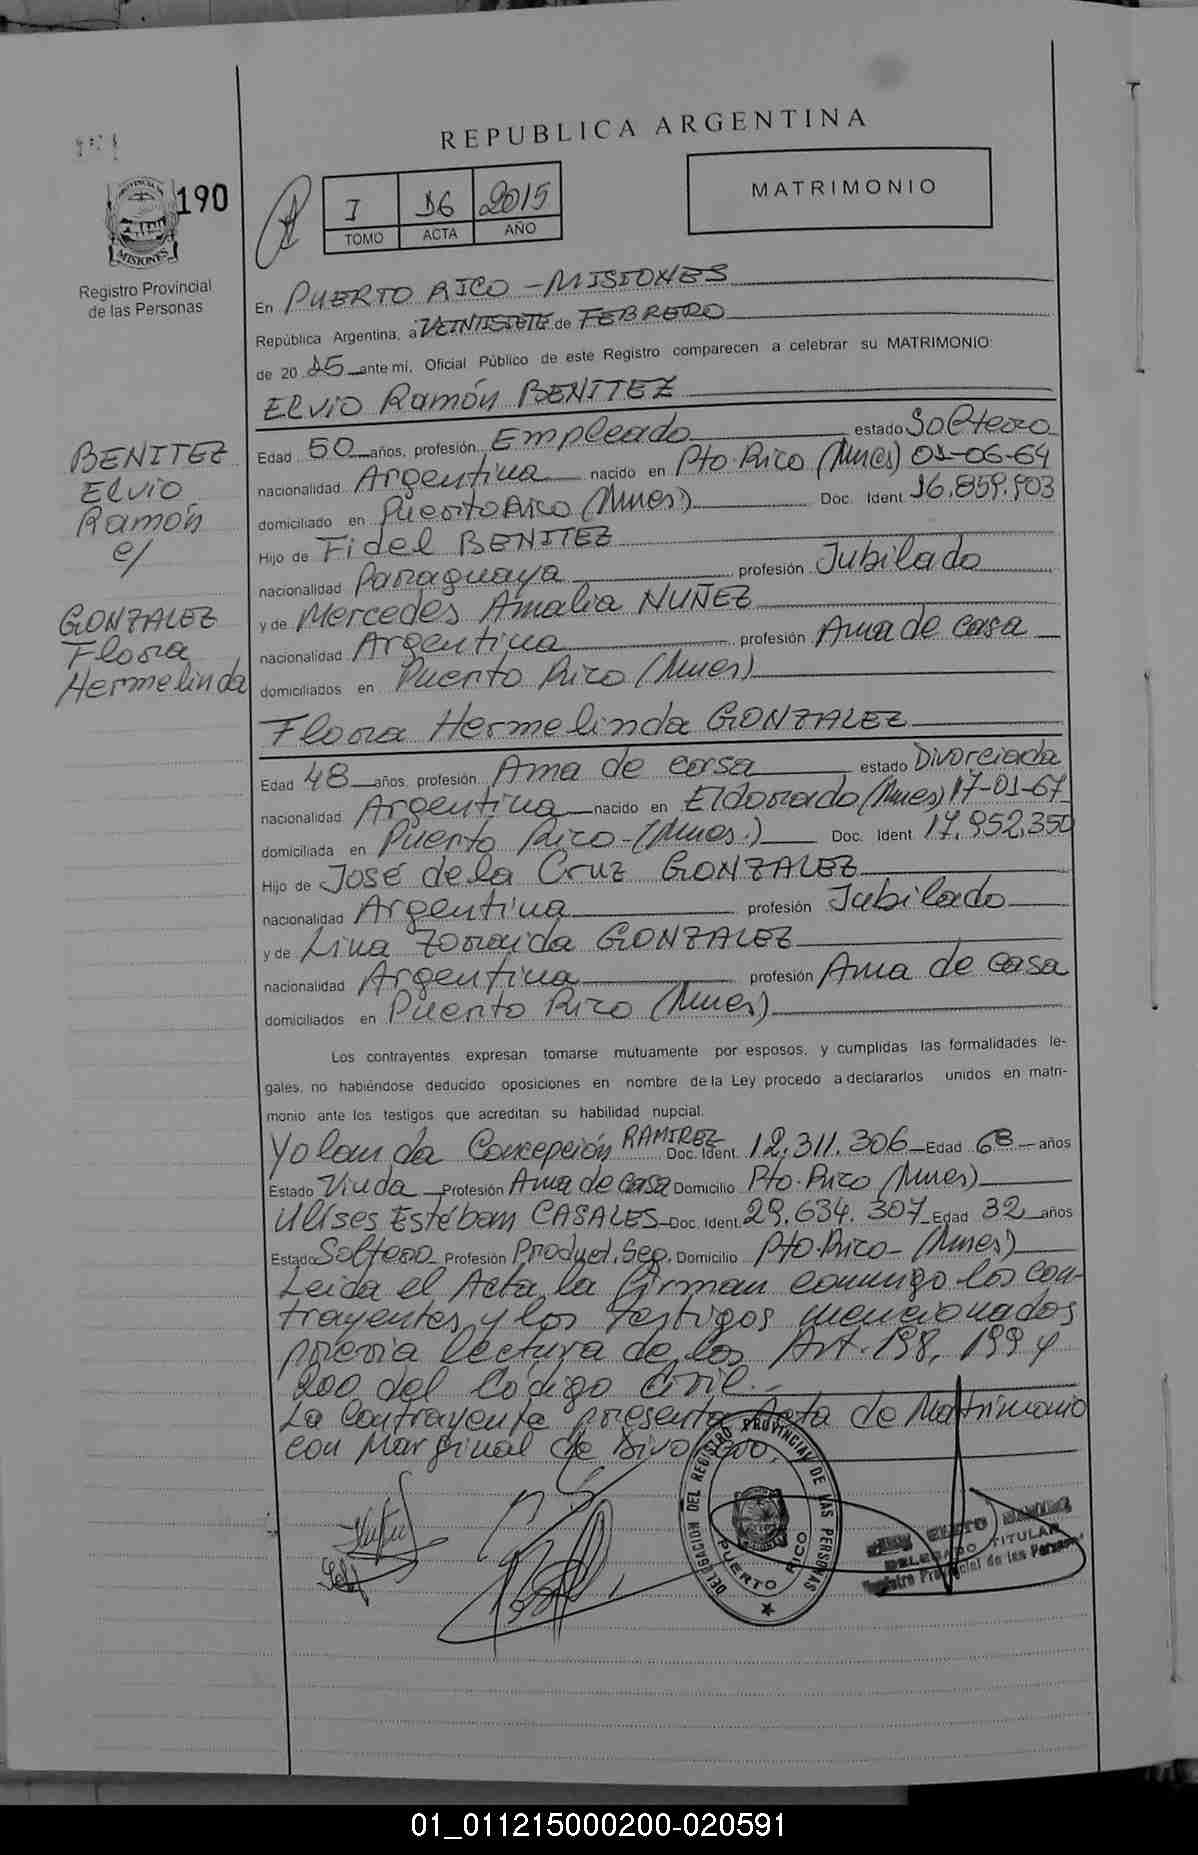 REPUBLICA ARGENTINA
190
I 16 2015
TOMO ACTA AÑO
MATRIMONIO
MISIONES
Registro Provincial
de las Personas
En PUERTO RICO - MISIONES
República Argentina, a VEINTISIETE de FEBRERO
de 20 15 ante mi, Oficial Público de este Registro comparecen a celebrar su MATRIMONIO:
Elvio Ramón BENITEZ
BENITEZ
Elvio
Ramón
c/
GONZALEZ
Flora
Hermelinda
Edad 50 años, profesión Empleado estado Soltero
nacionalidad Argentina nacido en Pto. Rico (Mnes) 01-06-64
domiciliado en Puerto Rico (Mnes) Doc. Ident. 16.859.903
Hijo de Fidel BENITEZ
nacionalidad Paraguaya profesión Jubilado
y de Mercedes Amalia NUÑEZ
nacionalidad Argentina profesión Ama de casa
domiciliados en Puerto Rico (Mnes)
Flora Hermelinda GONZALEZ
Edad 48 años, profesión Ama de casa estado Divorciada
nacionalidad Argentina nacido en Eldorado (Mnes) 17-01-67
domiciliada en Puerto Rico - (Mnes.) Doc. Ident 17.952.350
Hijo de José de la Cruz GONZALEZ
nacionalidad Argentina profesión Jubilado
y de Lina Zoraida GONZALEZ
nacionalidad Argentina profesión Ama de casa
domiciliados en Puerto Rico (Mnes)
Los contrayentes expresan tomarse mutuamente por esposos, y cumplidas las formalidades le-
gales, no habiéndose deducido oposiciones en nombre de la Ley procedo a declararlos unidos en matri-
monio ante los testigos que acreditan su habilidad nupcial.
Yolanda Concepción RAMIREZ Doc. Ident. 12.311.306 Edad 68 años
Estado Viuda Profesión Ama de casa Domicilio Pto. Rico (Mnes)
Ulises Estéban CASALES Doc. Ident. 29.634.307 Edad 32 años
Estado Soltero Profesión Product. Seg. Domicilio Pto. Rico - (Mnes)
Leida el Acta, la firman conmigo los con-
trayentes y los testigos mencionados
previa lectura de los Art. 198, 199 y
200 del Código Civil.-
La Contrayente presenta Acta de Matrimonio
con Marginal de Divorcio.
DELEGACION DEL REGISTRO PROVINCIAL DE LAS PERSONAS
PUERTO RICO
DELEGADO TITULAR
Registro Provincial de las Personas
01_011215000200-020591